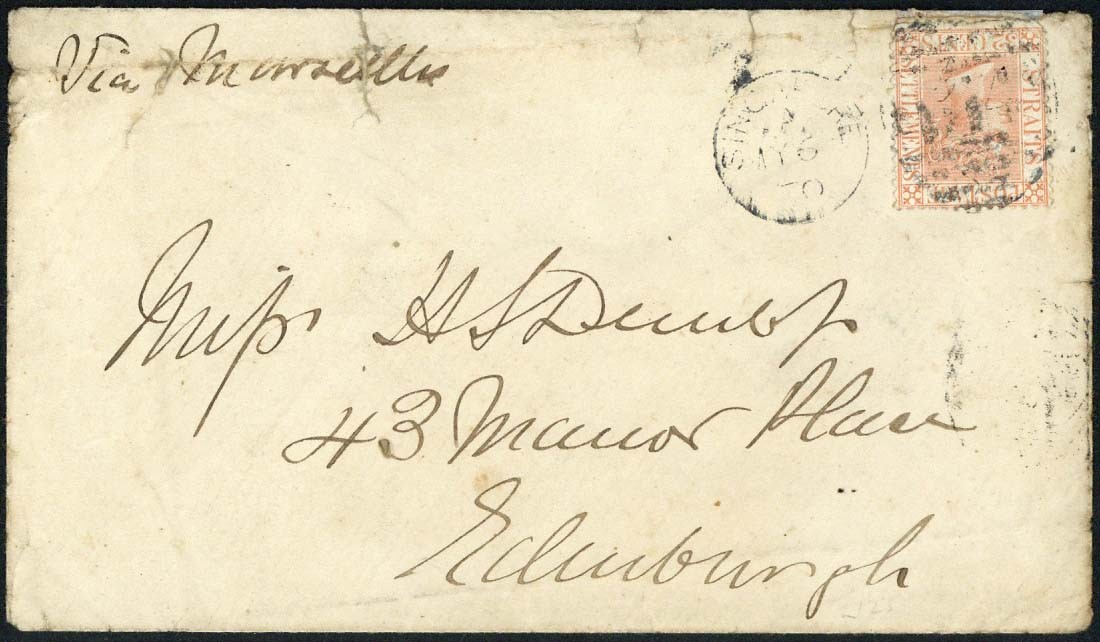 Via Marseilles
SINGAPORE
MY 20
70
STRAITS
SETTLEMENTS
Miss H S Dunlop
43 Manor Place
Edinburgh